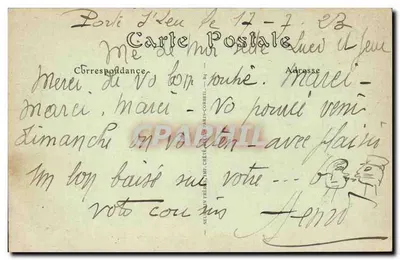 Port d'Leu le 17-7.23
Mé de Moi
Carte Postale
Correspondance
Adresse
Merci de Vo bon Marci -
marci. Marci - Vo pouvé venir
dimanche on vo - avec plaisir
Un bon baisé su votre ---
voto cousin Henri